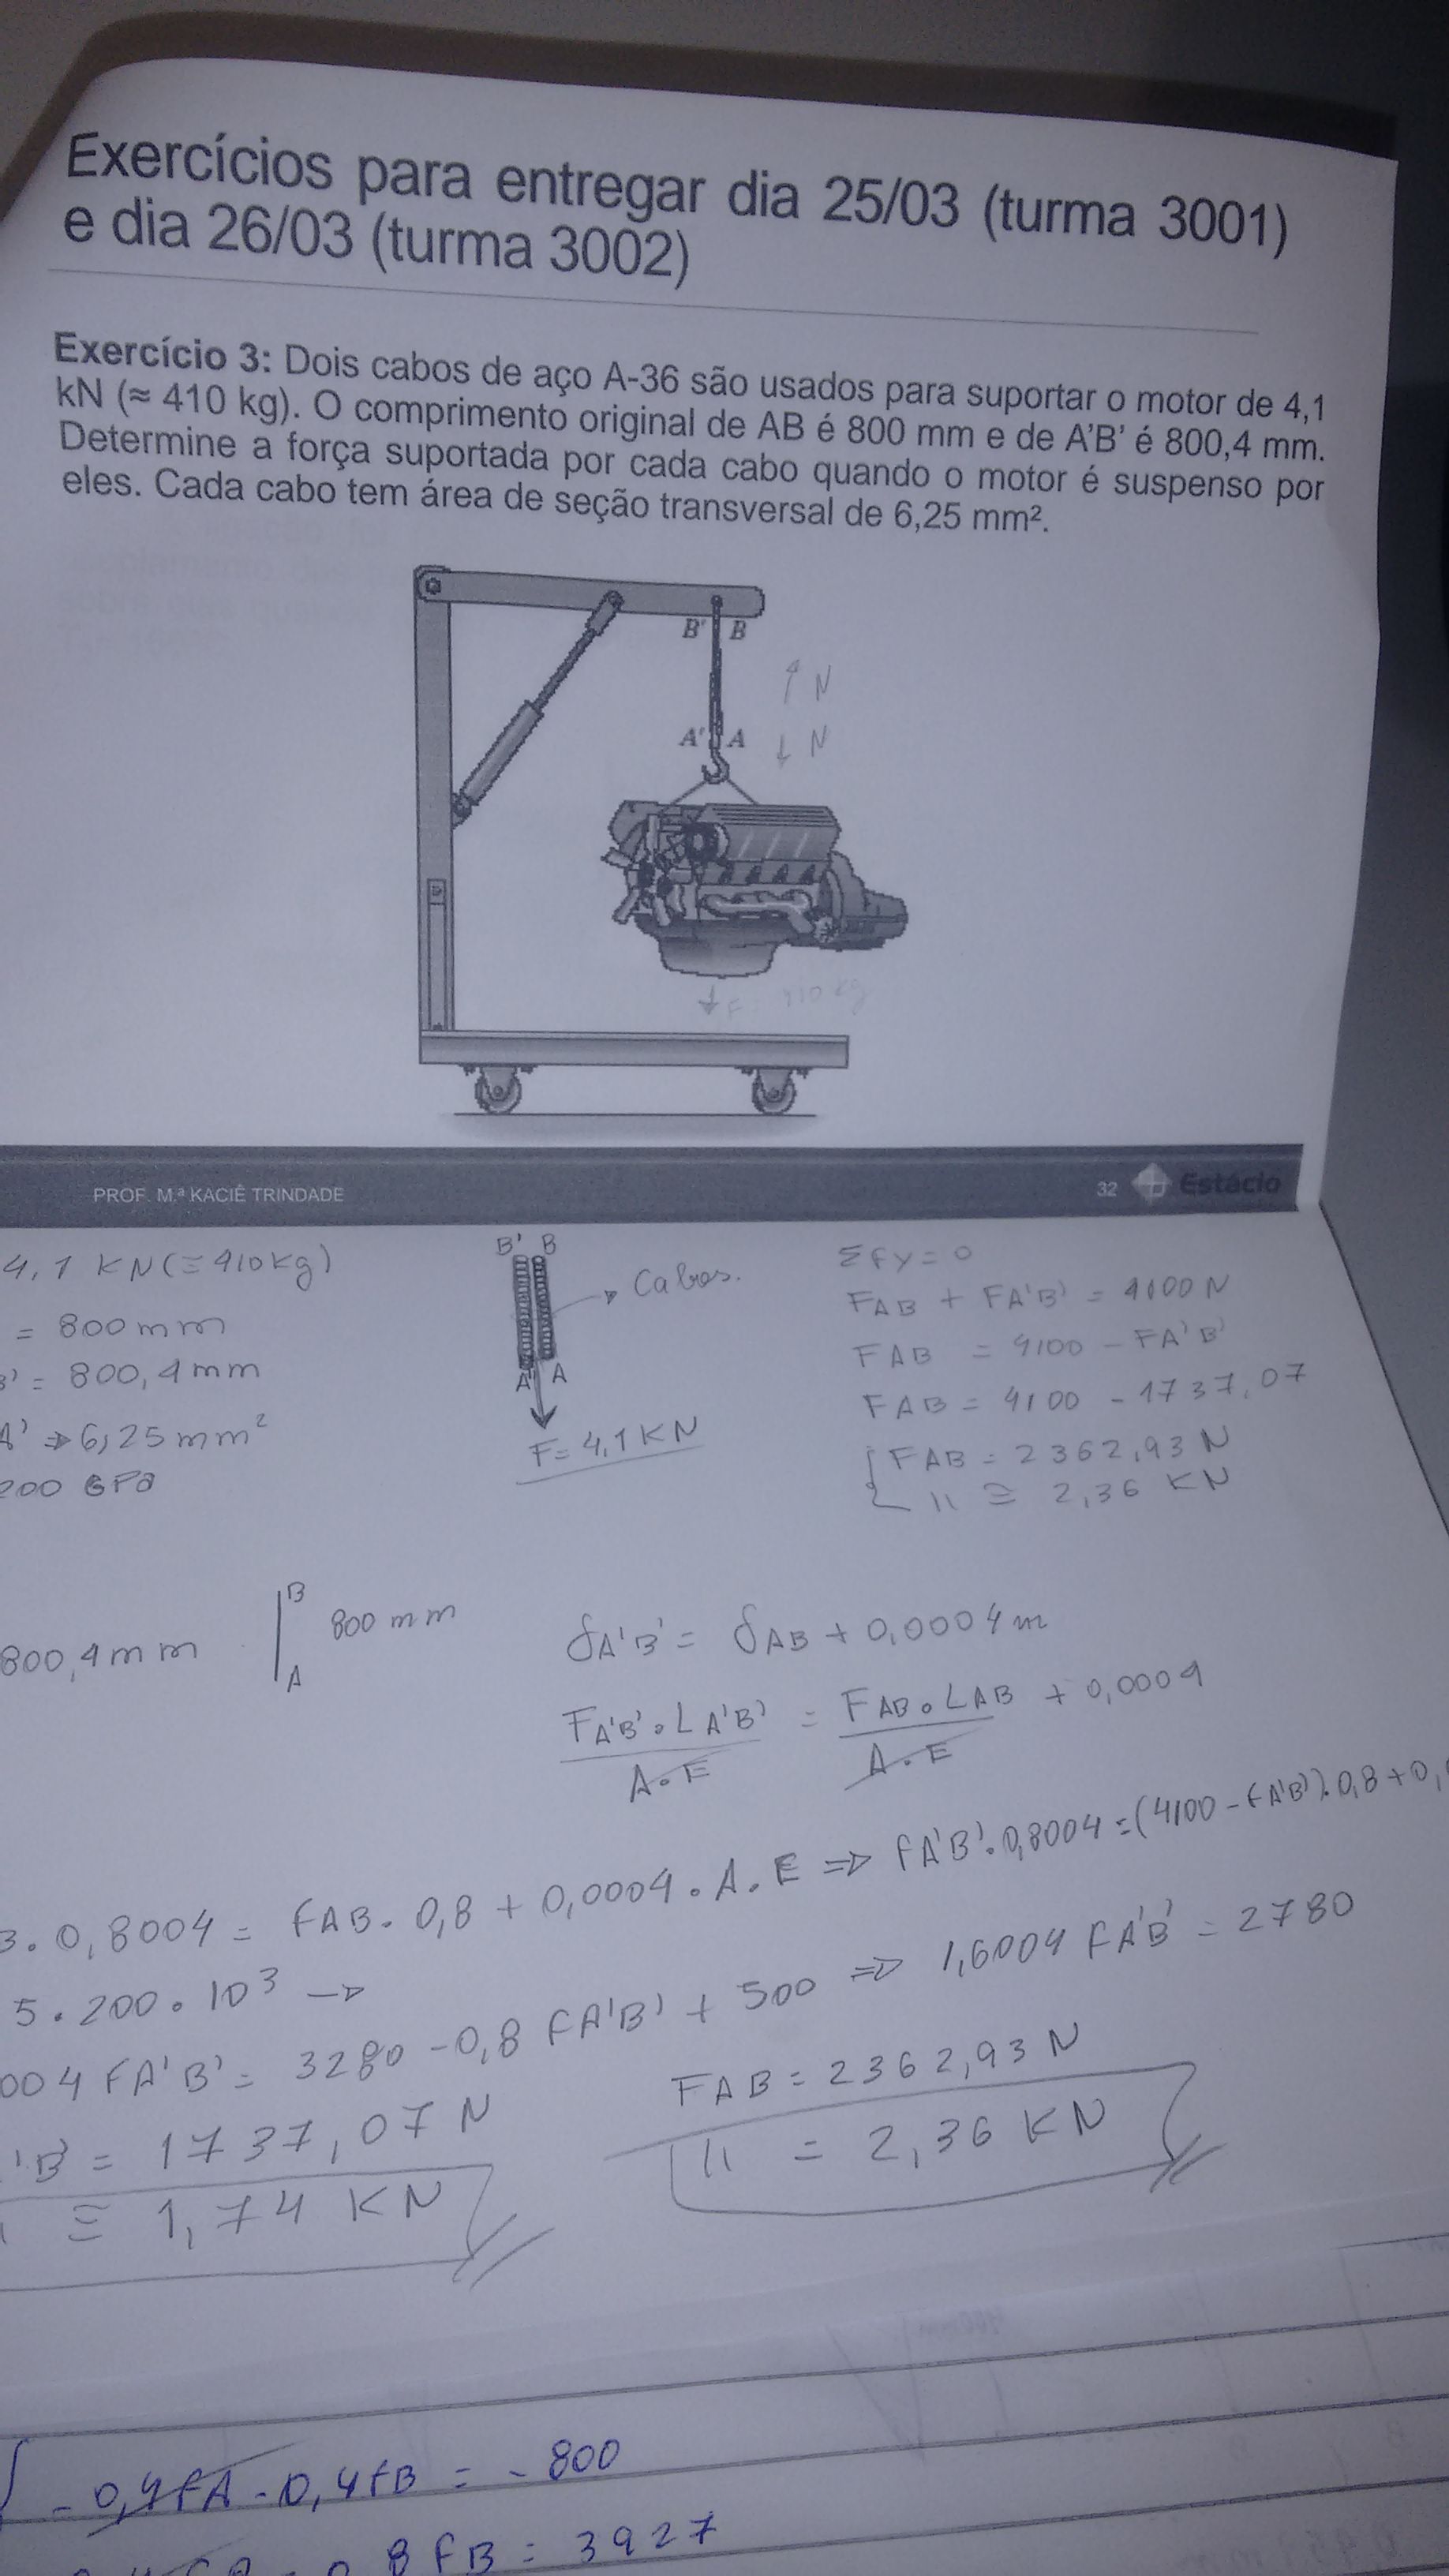 Exercícios para entregar dia 25/03 (turma 3001)
e dia 26/03 (turma 3002)
Exercício 3: Dois cabos de aço A-36 são usados para suportar o motor de 4,1
kN (≈ 410 kg). O comprimento original de AB é 800 mm e de A'B' é 800,4 mm.
Determine a força suportada por cada cabo quando o motor é suspenso por
eles. Cada cabo tem área de seção transversal de 6,25 mm².
B' B
↑ N
A' A
↓ N
↓ F 410 kg
PROF. M.ª KACIÊ TRINDADE
32 Estácio
4,1 KN (≅ 410 kg)
= 800 mm
B' = 800,4 mm
A' ⇒ 6,25 mm²
200 GPa
B' B
→ Cabos.
A' A
F = 4,1 KN
Σfy = 0
FAB + FA'B' = 4100 N
FAB = 4100 - FA'B'
FAB = 4100 - 1737,07
FAB = 2362,93 N
" ≅ 2,36 KN
800,4 mm
B
800 mm
A
δA'B' = δAB + 0,0004 m
FA'B' . LA'B' = FAB . LAB + 0,0004
A . E A . E
B . 0,8004 = FAB . 0,8 + 0,0004 . A . E ⇒ FA'B' . 0,8004 = (4100 - FA'B') . 0,8 + 0,
5 . 200 . 10³ →
004 FA'B' = 3280 - 0,8 FA'B' + 500 ⇒ 1,6004 FA'B' = 2780
'B' = 1737,07 N
≅ 1,74 KN
FAB = 2362,93 N
" = 2,36 KN
- 0,4fA - 0,4fB = - 800
8 fB = 3927